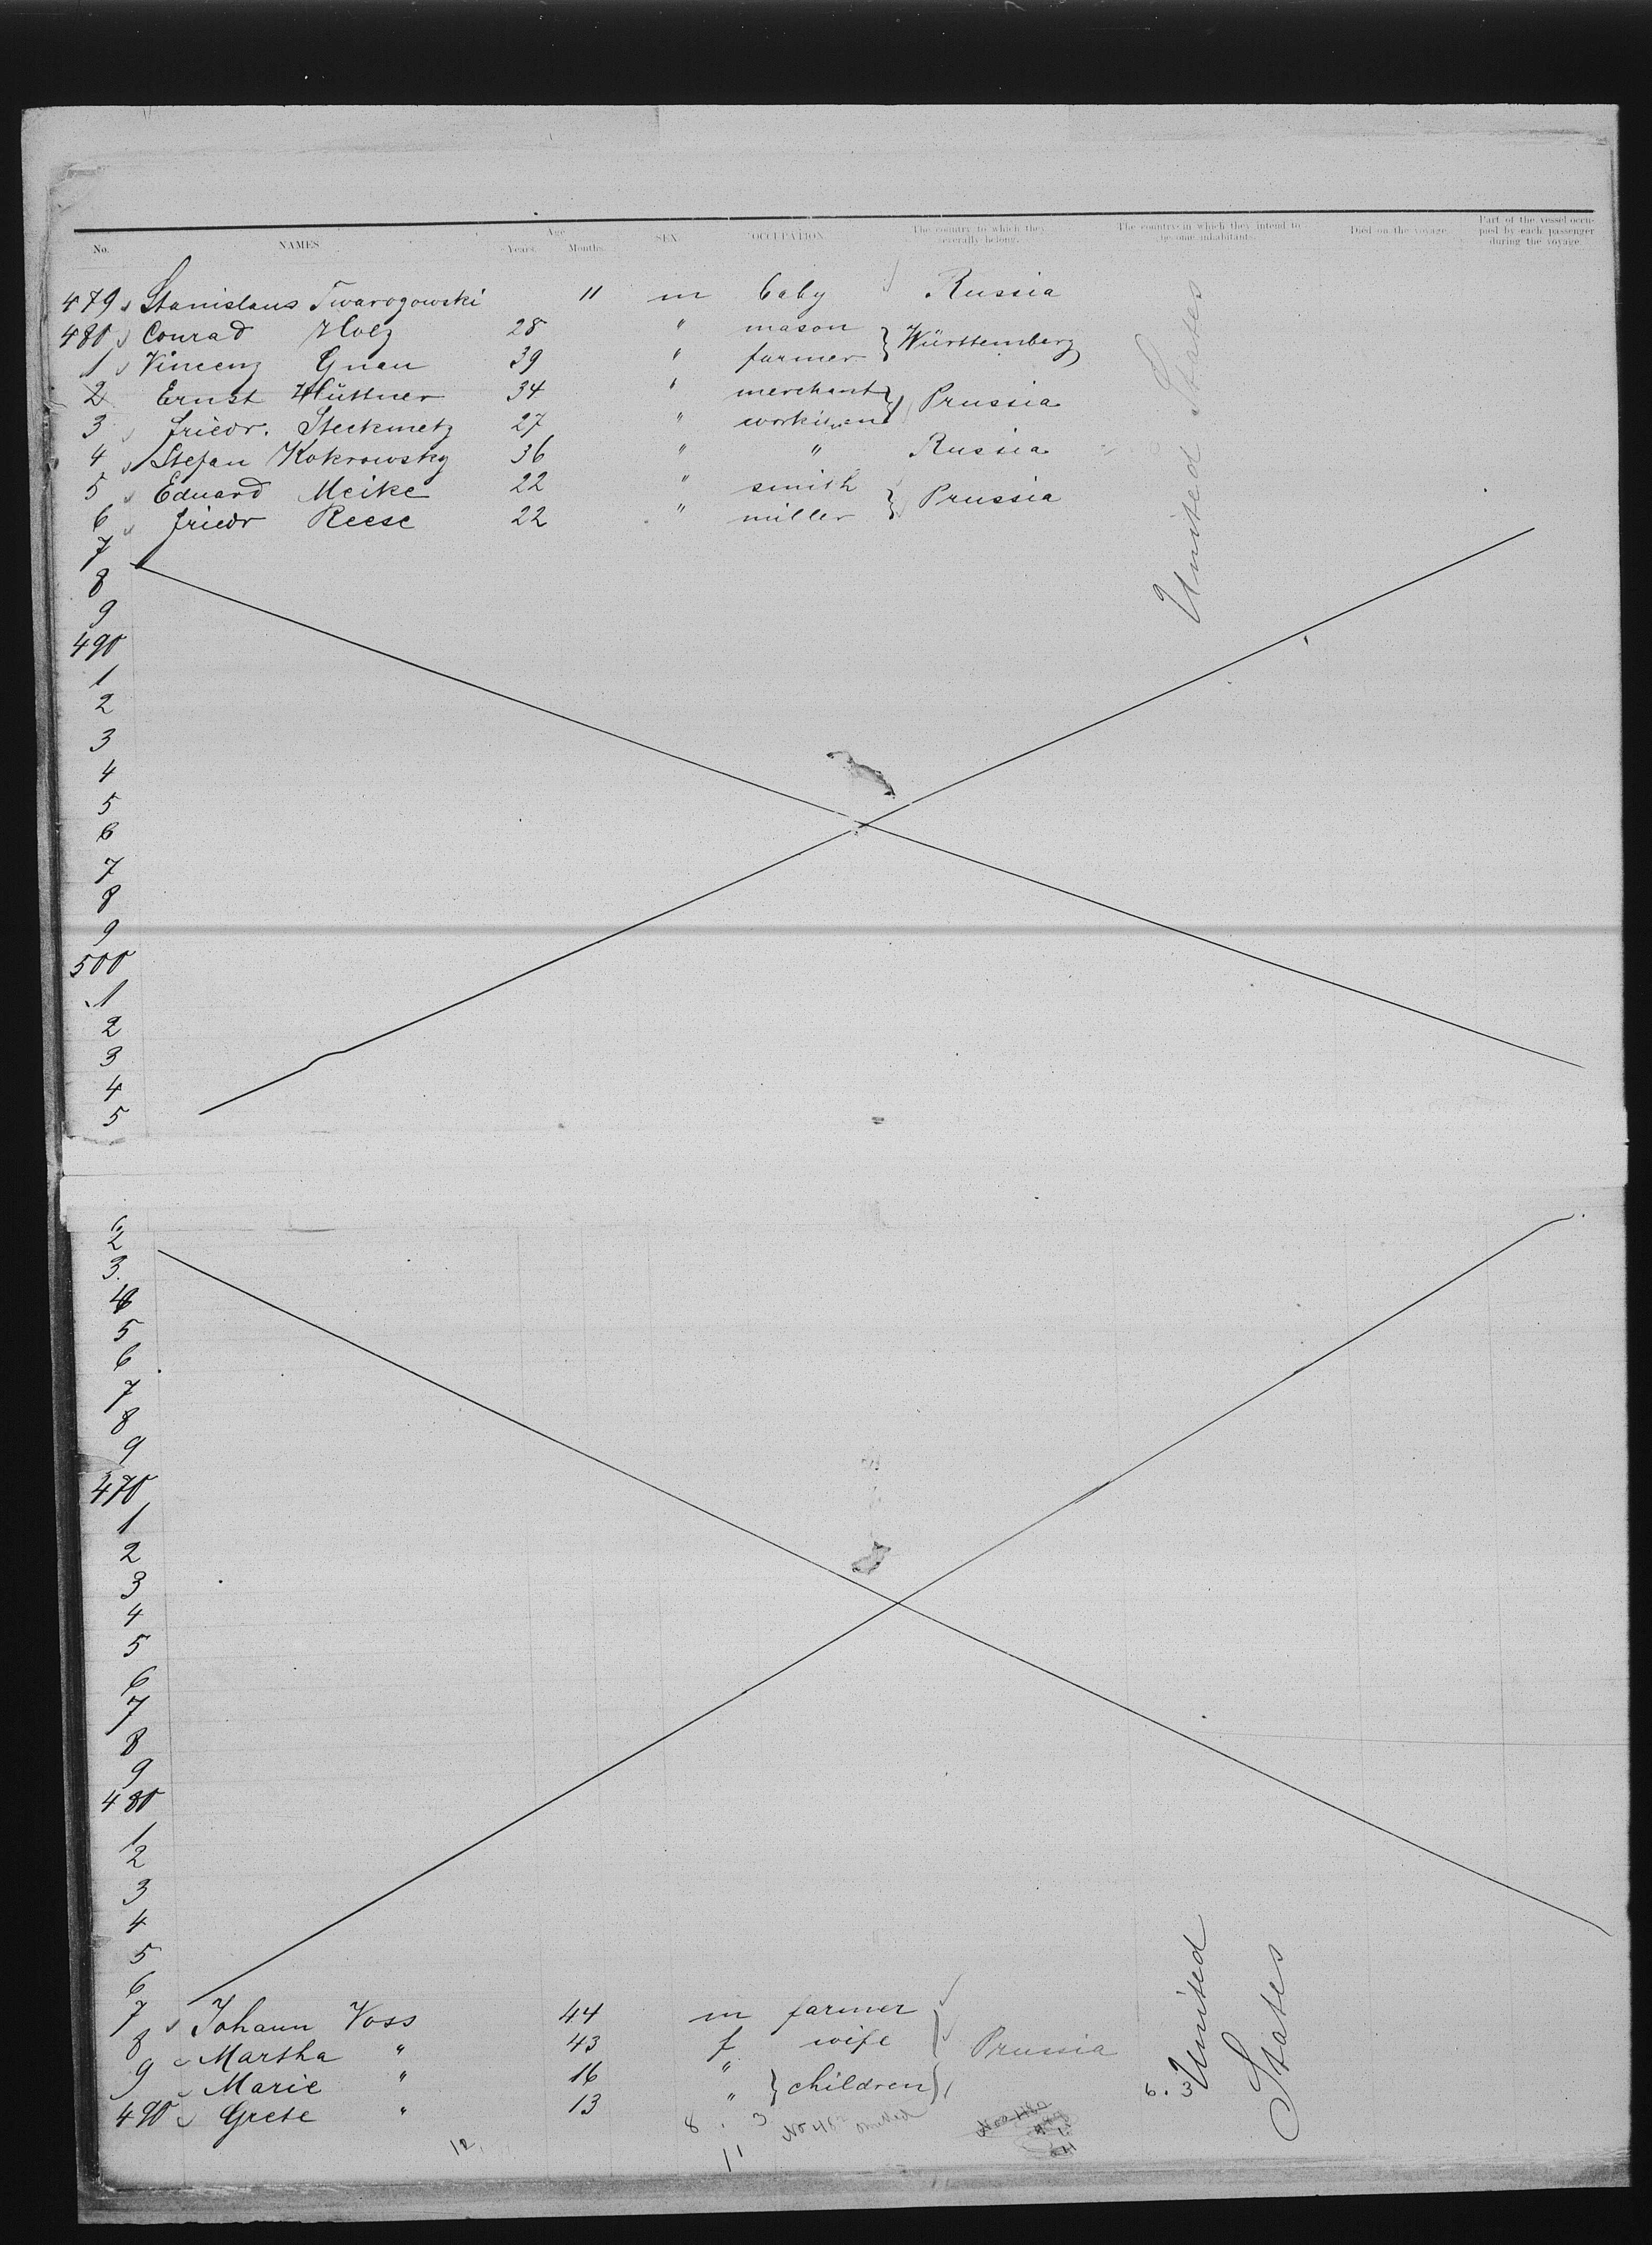 No. NAMES Age Years Months SEX OCCUPATION The country to which they severally belong. The country in which they intend to become inhabitants. Died on the voyage. Part of the vessel occupied by each passenger during the voyage.
479 Stanislaus Twarogowski 11 m baby Russia
480 Conrad Holz 28 " mason } Württemberg
1 Vincenz Gnau 39 " farmer
2 Ernst Hüttner 34 " merchant } Prussia
3 Friedr. Steckmetz 27 " workman
4 Stefan Kokrowsky 36 " " Russia
5 Eduard Meike 22 " smith } Prussia
6 Friedr Reese 22 " miller
United States
7
8
9
490
1
2
3
4
5
6
7
8
9
500
1
2
3
4
5
2
3
4
5
6
7
8
9
470
1
2
3
4
5
6
7
8
9
480
1
2
3
4
5
6
7 Johann Voss 44 m farmer
8 Martha " 43 f wife } Prussia
9 Marie " 16 " } children
490 Grete " 13 "
United States
6. 3
8. 3 omitted
12. 11